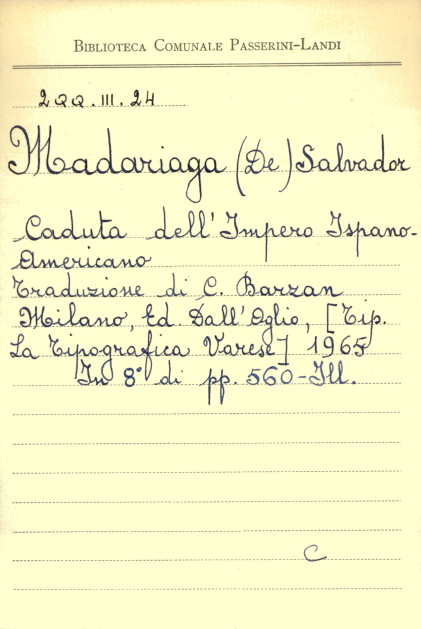 Biblioteca Comunale Passerini-Landi
2QQ.III.24
Madariaga (De) Salvador
Caduta dell'Impero Ispano-
Americano
Traduzione di C. Barzan
Milano, Ed. Dall'Oglio, [Tip.
La Tipografica Varese] 1965
In 8° di pp. 560-Ill.
C